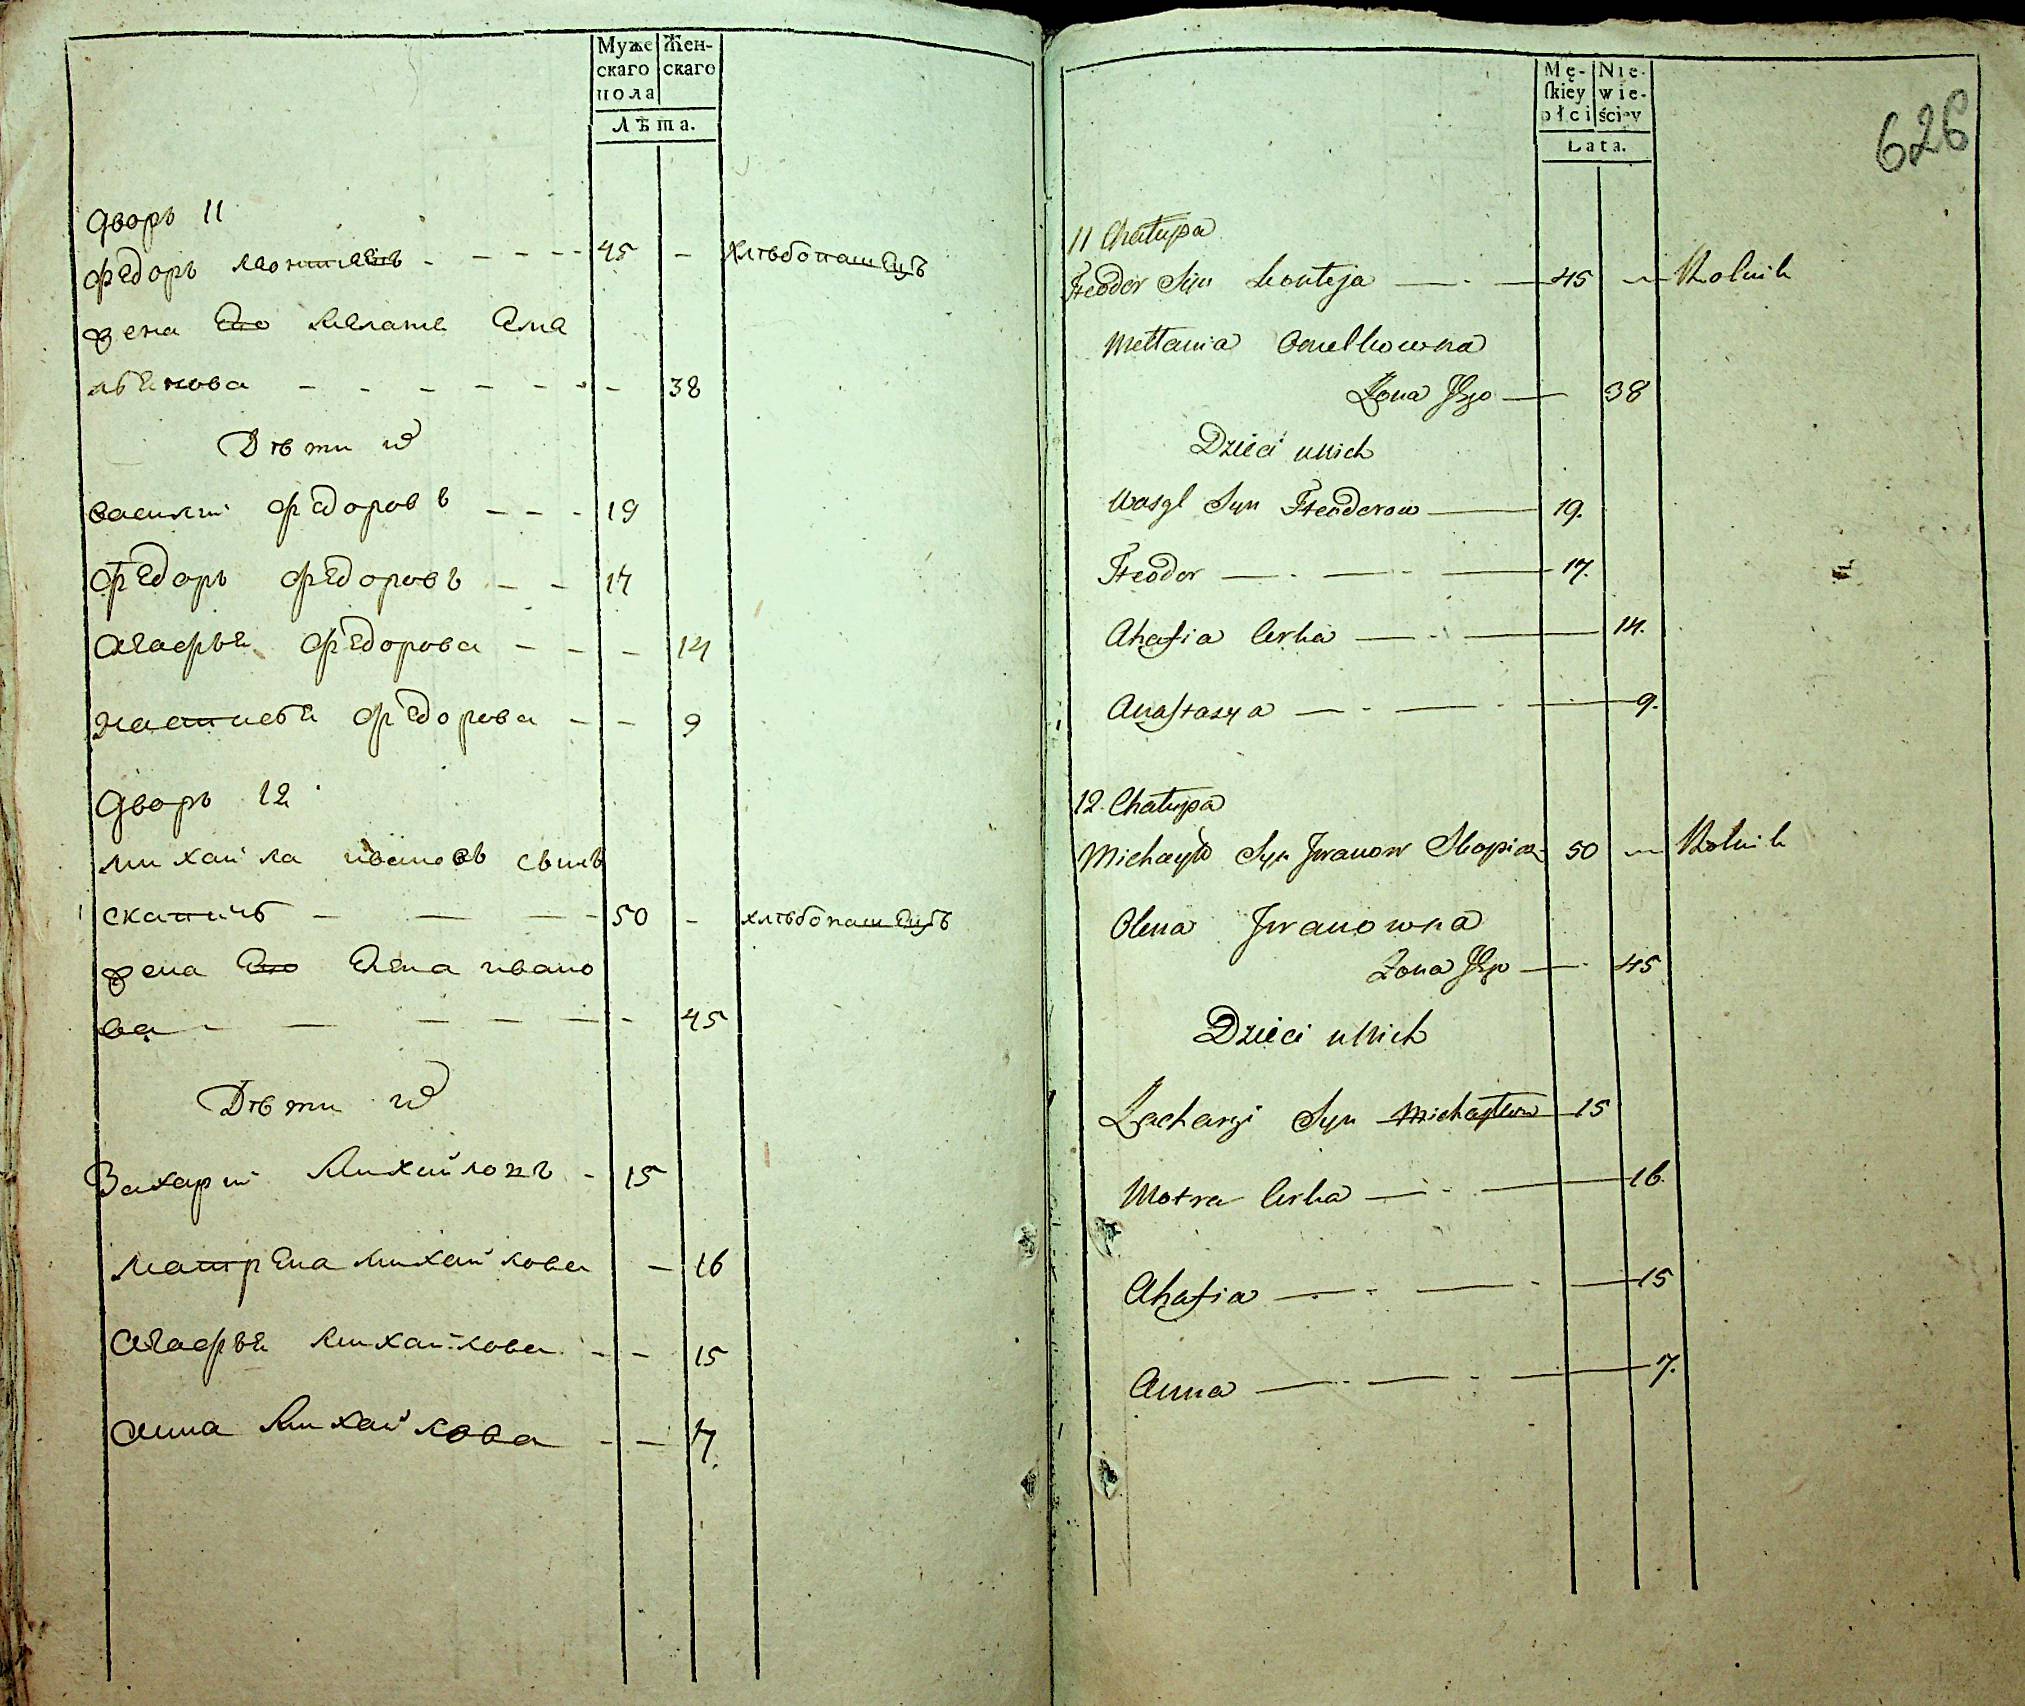 Муже Жен-
скаго скаго
пола
Лѣта.
Дворъ 11
Федоръ Леонтиевъ 45 - хлѣбопашецъ
жена Его Меланія Еме
льянова 38
Дѣти их
Василий Федоровъ 19
Федоръ Федоровъ 17
Агафья Федорова 14
Настасья Федорова 9
Дворъ 12
Михайла Ивановъ
50 - хлѣбопашецъ
жена Его Елена Ивано
ва 45
Дѣти их
Захарий Михайловъ 15
Матрена Михайлова 16
Агафья Михайлова 15
Анна Михайлова 7
Mę- Nie-
ſkiey wie-
płci ściey
Lata.
626
11 Chałupa
Fteodor Syn Leonteja 45 Rolnik
Mełania Omelkowna
Żona Jego 38
Dzieci u Nich
Wasyl Syn Fteodorow 19.
Fteodor 17.
Ahafia Corka 14.
Anaſtasya 9.
12. Chałupa
Michayło Syn Jwanow 50 Rolnik
Olena Jwanowna
Żona Jego 45
Dzieci u Nich
Zacharyi Syn Michayłow 15
Motra Corka 16.
Ahafia 15
Anna 7.